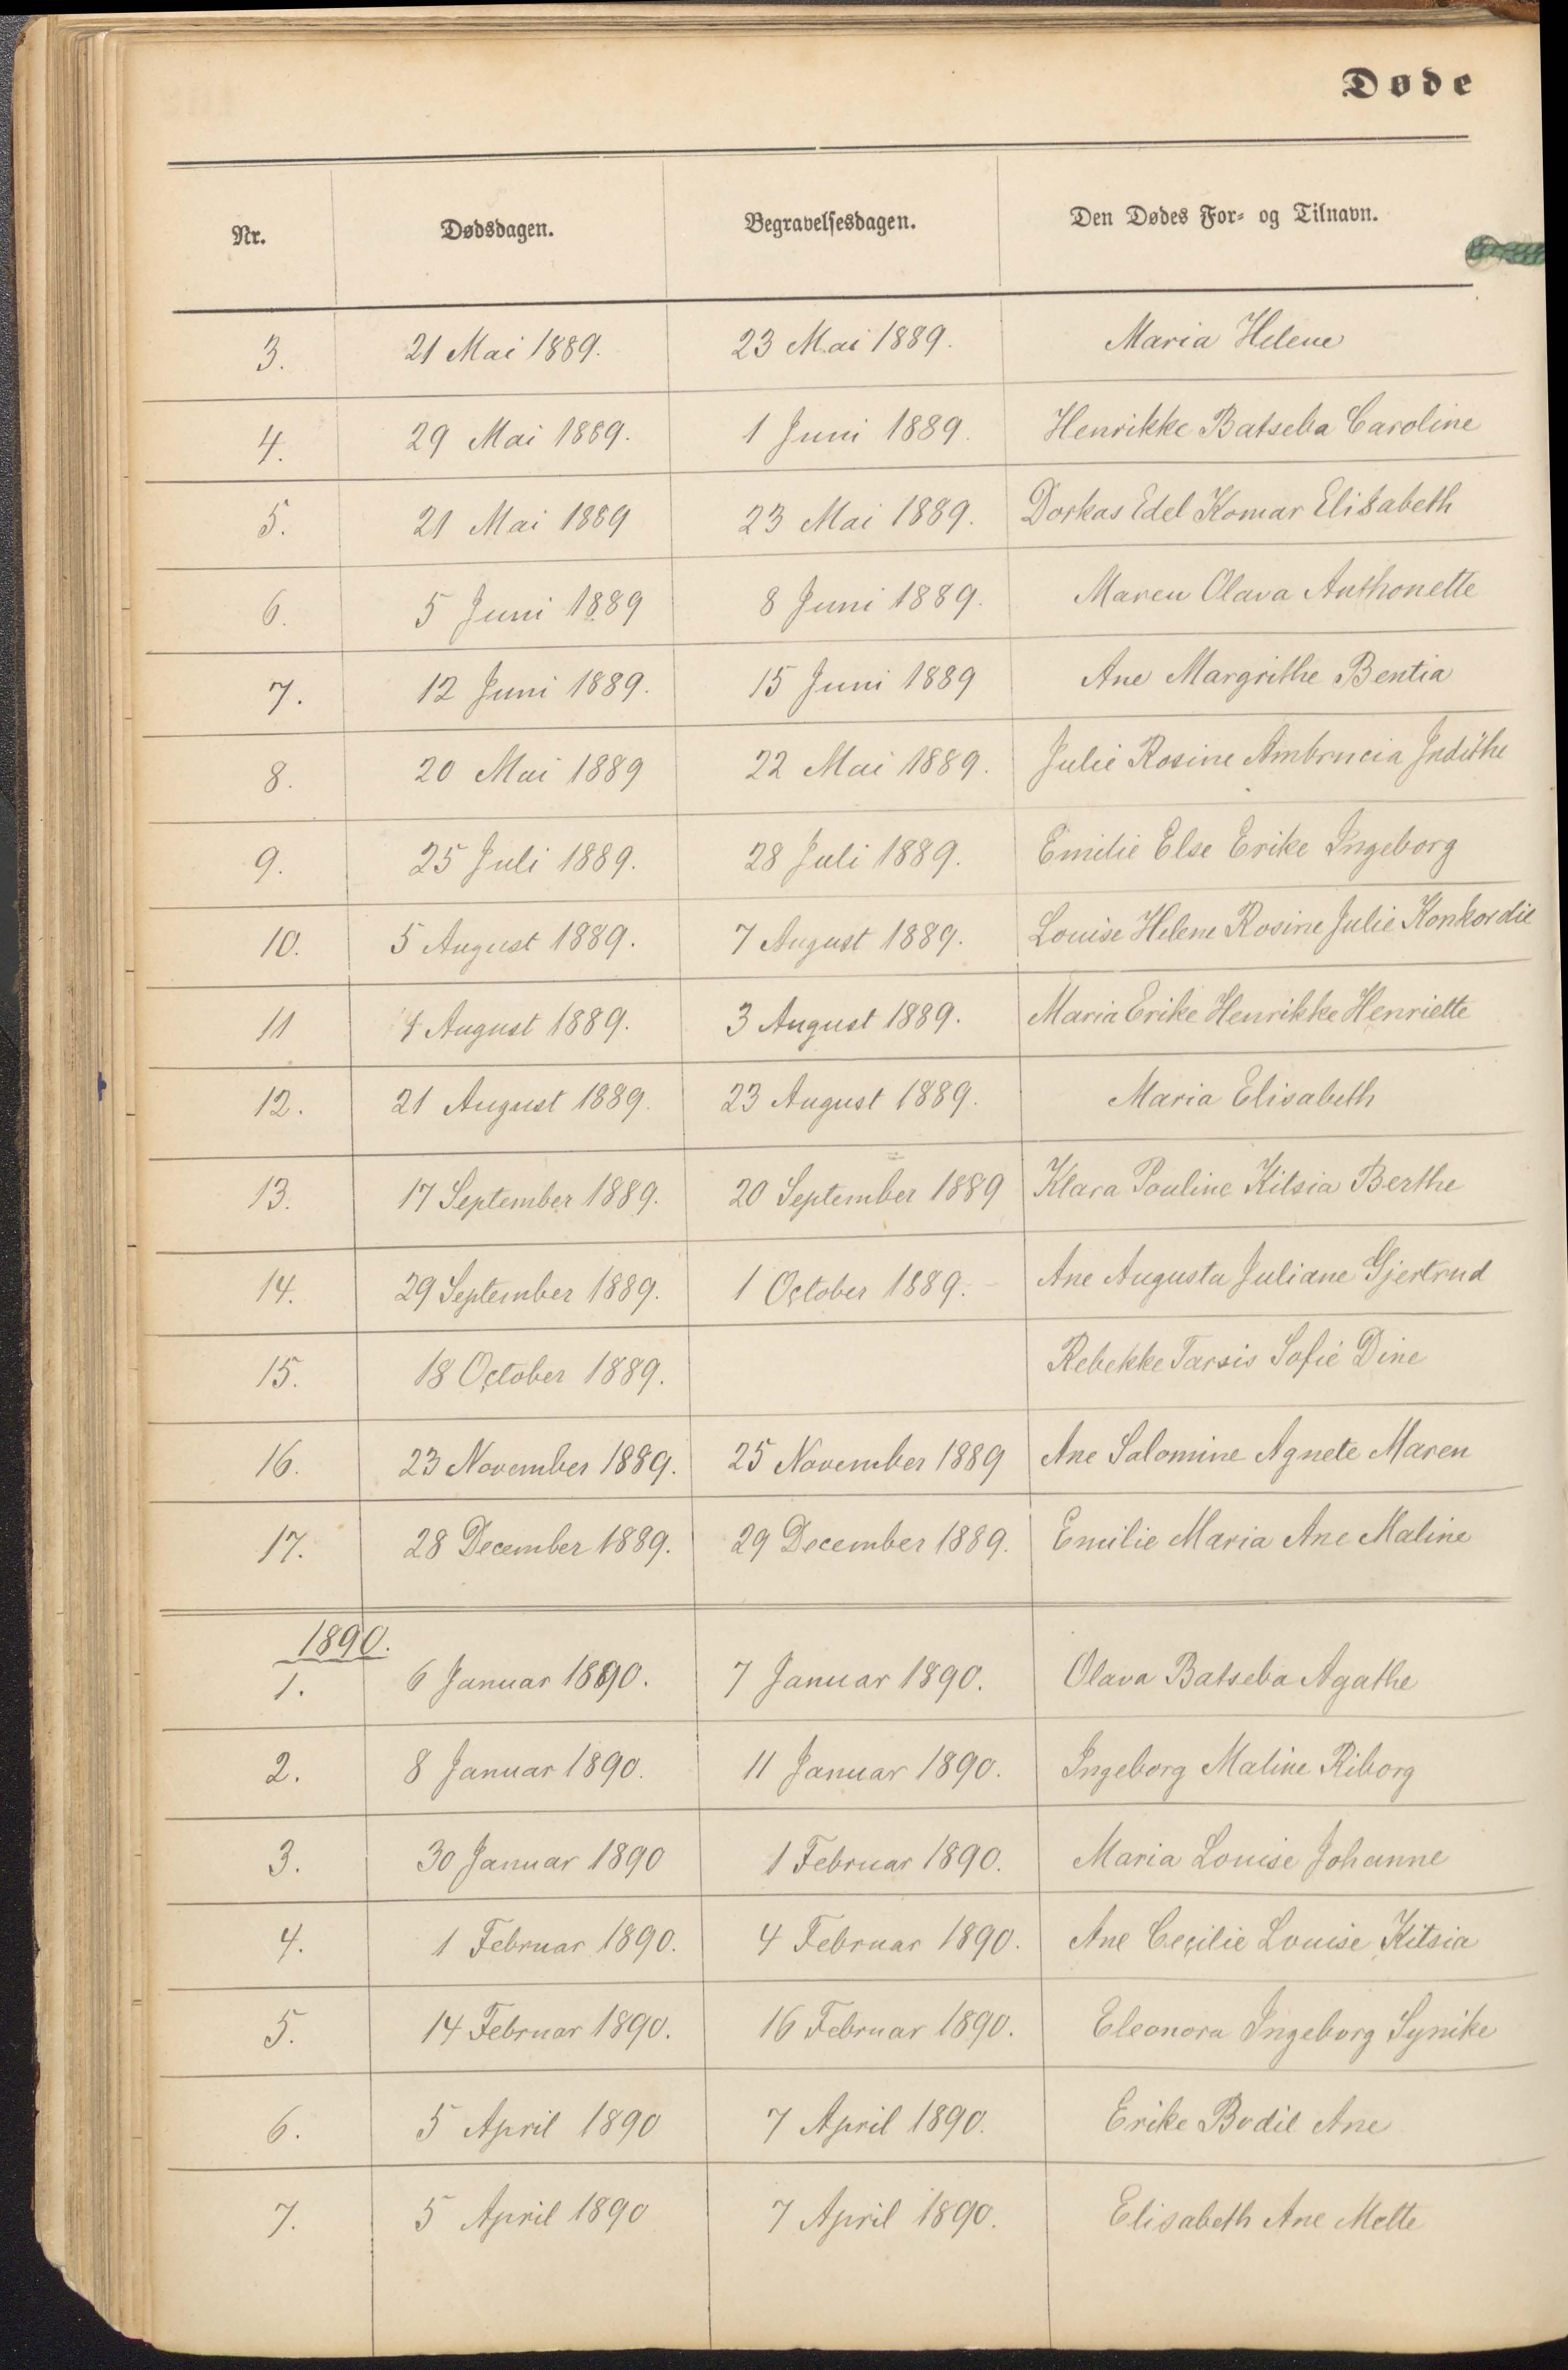 Døde
Nr. Dødsdagen. Begravelsesdagen. Den Dødes For- og Tilnavn.
3. 21 Mai 1889. 23 Mai 1889. Maria Helene
4. 29 Mai 1889. 1 Juni 1889. Henrikke Batseba Caroline
5. 21 Mai 1889 23 Mai 1889. Dorkas Edel Komar Elisabeth
6. 5 Juni 1889 8 Juni 1889. Maren Olava Anthonette
7. 12 Juni 1889. 15 Juni 1889 Ane Margrithe Bentia
8. 20 Mai 1889 22 Mai 1889. Julie Rosine Ambrucia Judithe
9. 25 Juli 1889. 28 Juli 1889. Emilie Else Erike Ingeborg
10. 5 August 1889. 7 August 1889. Louise Helene Rosine Julie Konkordie
11 August 1889. 3 August 1889. Maria Erike Henrikke Henriette
12. 21 August 1889. 23 August 1889. Maria Elisabeth
13. 17 September 1889. 20 September 1889 Klara Pouline Kitsia Berthe
14. 29 September 1889. 1 October 1889. Ane Augusta Juliane Gjertrud
15. 18 October 1889. Rebekke Tarsis Sofie Dine
16. 23 November 1889. 25 November 1889 Ane Salomine Agnete Maren
17. 28 December 1889. 29 December 1889. Emilie Maria Ane Maline
1890.
1. 6 Januar 1890. 7 Januar 1890. Olava Batseba Agathe
2. 8 Januar 1890. 11 Januar 1890. Ingeborg Maline Riborg
3. 30 Januar 1890 1 Februar 1890. Maria Louise Johanne
4. 1 Februar 1890. 4 Februar 1890. Ane Cecilie Louise Kitsia
5. 14 Februar 1890. 16 Februar 1890. Eleonora Ingeborg Synike
6. 5 April 1890 7 April 1890. Erike Bodil Ane
7. 5 April 1890 7 April 1890. Elisabeth Ane Mette